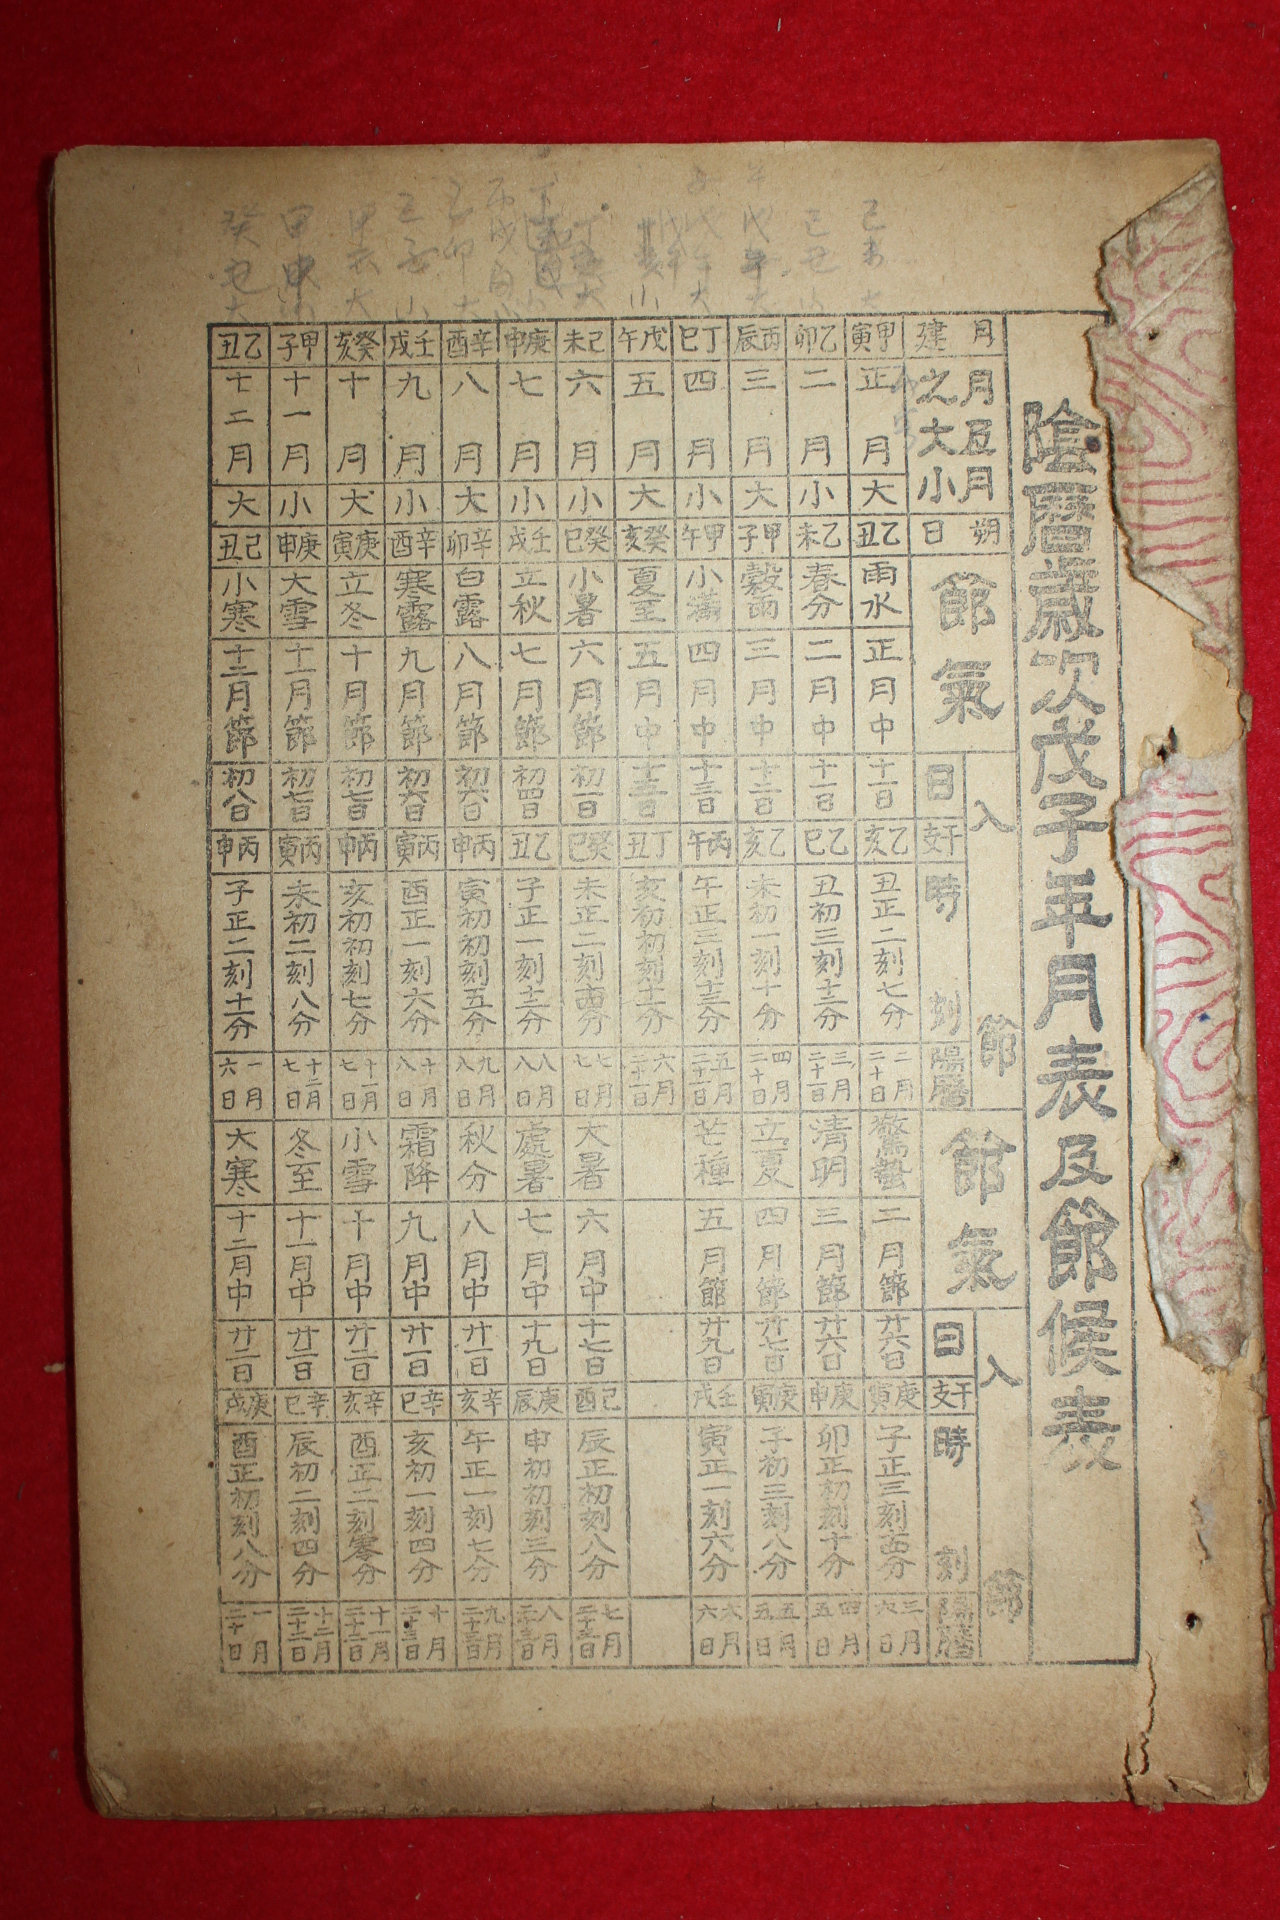 陰曆歲次戊子年月表及節候表
月建 月 月之大小 朔日 節氣 入節 日 干支 時刻 陽曆 節氣 入節 日 干支 時刻 陽曆
甲寅 正月 大 乙丑 雨水 正月中 十一日 乙亥 丑正二刻七分 二月二十日 驚蟄 二月節 廿六日 庚寅 子正三刻十四分 三月六日
乙卯 二月 小 乙未 春分 二月中 十一日 乙巳 丑初三刻十二分 三月二十一日 清明 三月節 廿六日 庚申 卯正初刻十分 四月五日
丙辰 三月 大 甲子 穀雨 三月中 十二日 乙亥 未初一刻十分 四月二十日 立夏 四月節 廿七日 庚寅 子初三刻八分 五月五日
丁巳 四月 小 甲午 小滿 四月中 十三日 丙午 午正三刻十三分 五月二十一日 芒種 五月節 廿九日 壬戌 寅正一刻六分 六月六日
戊午 五月 大 癸亥 夏至 五月中 十五日 丁丑 亥初初刻十一分 六月二十一日
己未 六月 小 癸巳 小暑 六月節 初一日 癸巳 未正二刻十四分 七月七日 大暑 六月中 十七日 己酉 辰正初刻八分 七月二十三日
庚申 七月 小 壬戌 立秋 七月節 初四日 乙丑 子正一刻十二分 八月八日 處暑 七月中 十九日 庚辰 申初初刻三分 八月二十三日
辛酉 八月 大 辛卯 白露 八月節 初六日 丙申 寅初初刻五分 九月八日 秋分 八月中 廿一日 辛亥 午正一刻七分 九月二十三日
壬戌 九月 小 辛酉 寒露 九月節 初六日 丙寅 酉正一刻六分 十月八日 霜降 九月中 廿一日 辛巳 亥初一刻四分 十月二十三日
癸亥 十月 大 庚寅 立冬 十月節 初七日 丙申 亥初初刻七分 十一月七日 小雪 十月中 廿二日 辛亥 酉正二刻零分 十一月二十二日
甲子 十一月 小 庚申 大雪 十一月節 初七日 丙寅 未初二刻八分 十二月七日 冬至 十一月中 廿二日 辛巳 辰初二刻四分 十二月二十二日
乙丑 十二月 大 己丑 小寒 十二月節 初八日 丙申 子正二刻十一分 一月六日 大寒 十二月中 廿二日 庚戌 酉正初刻八分 一月二十日
己未大
己丑小